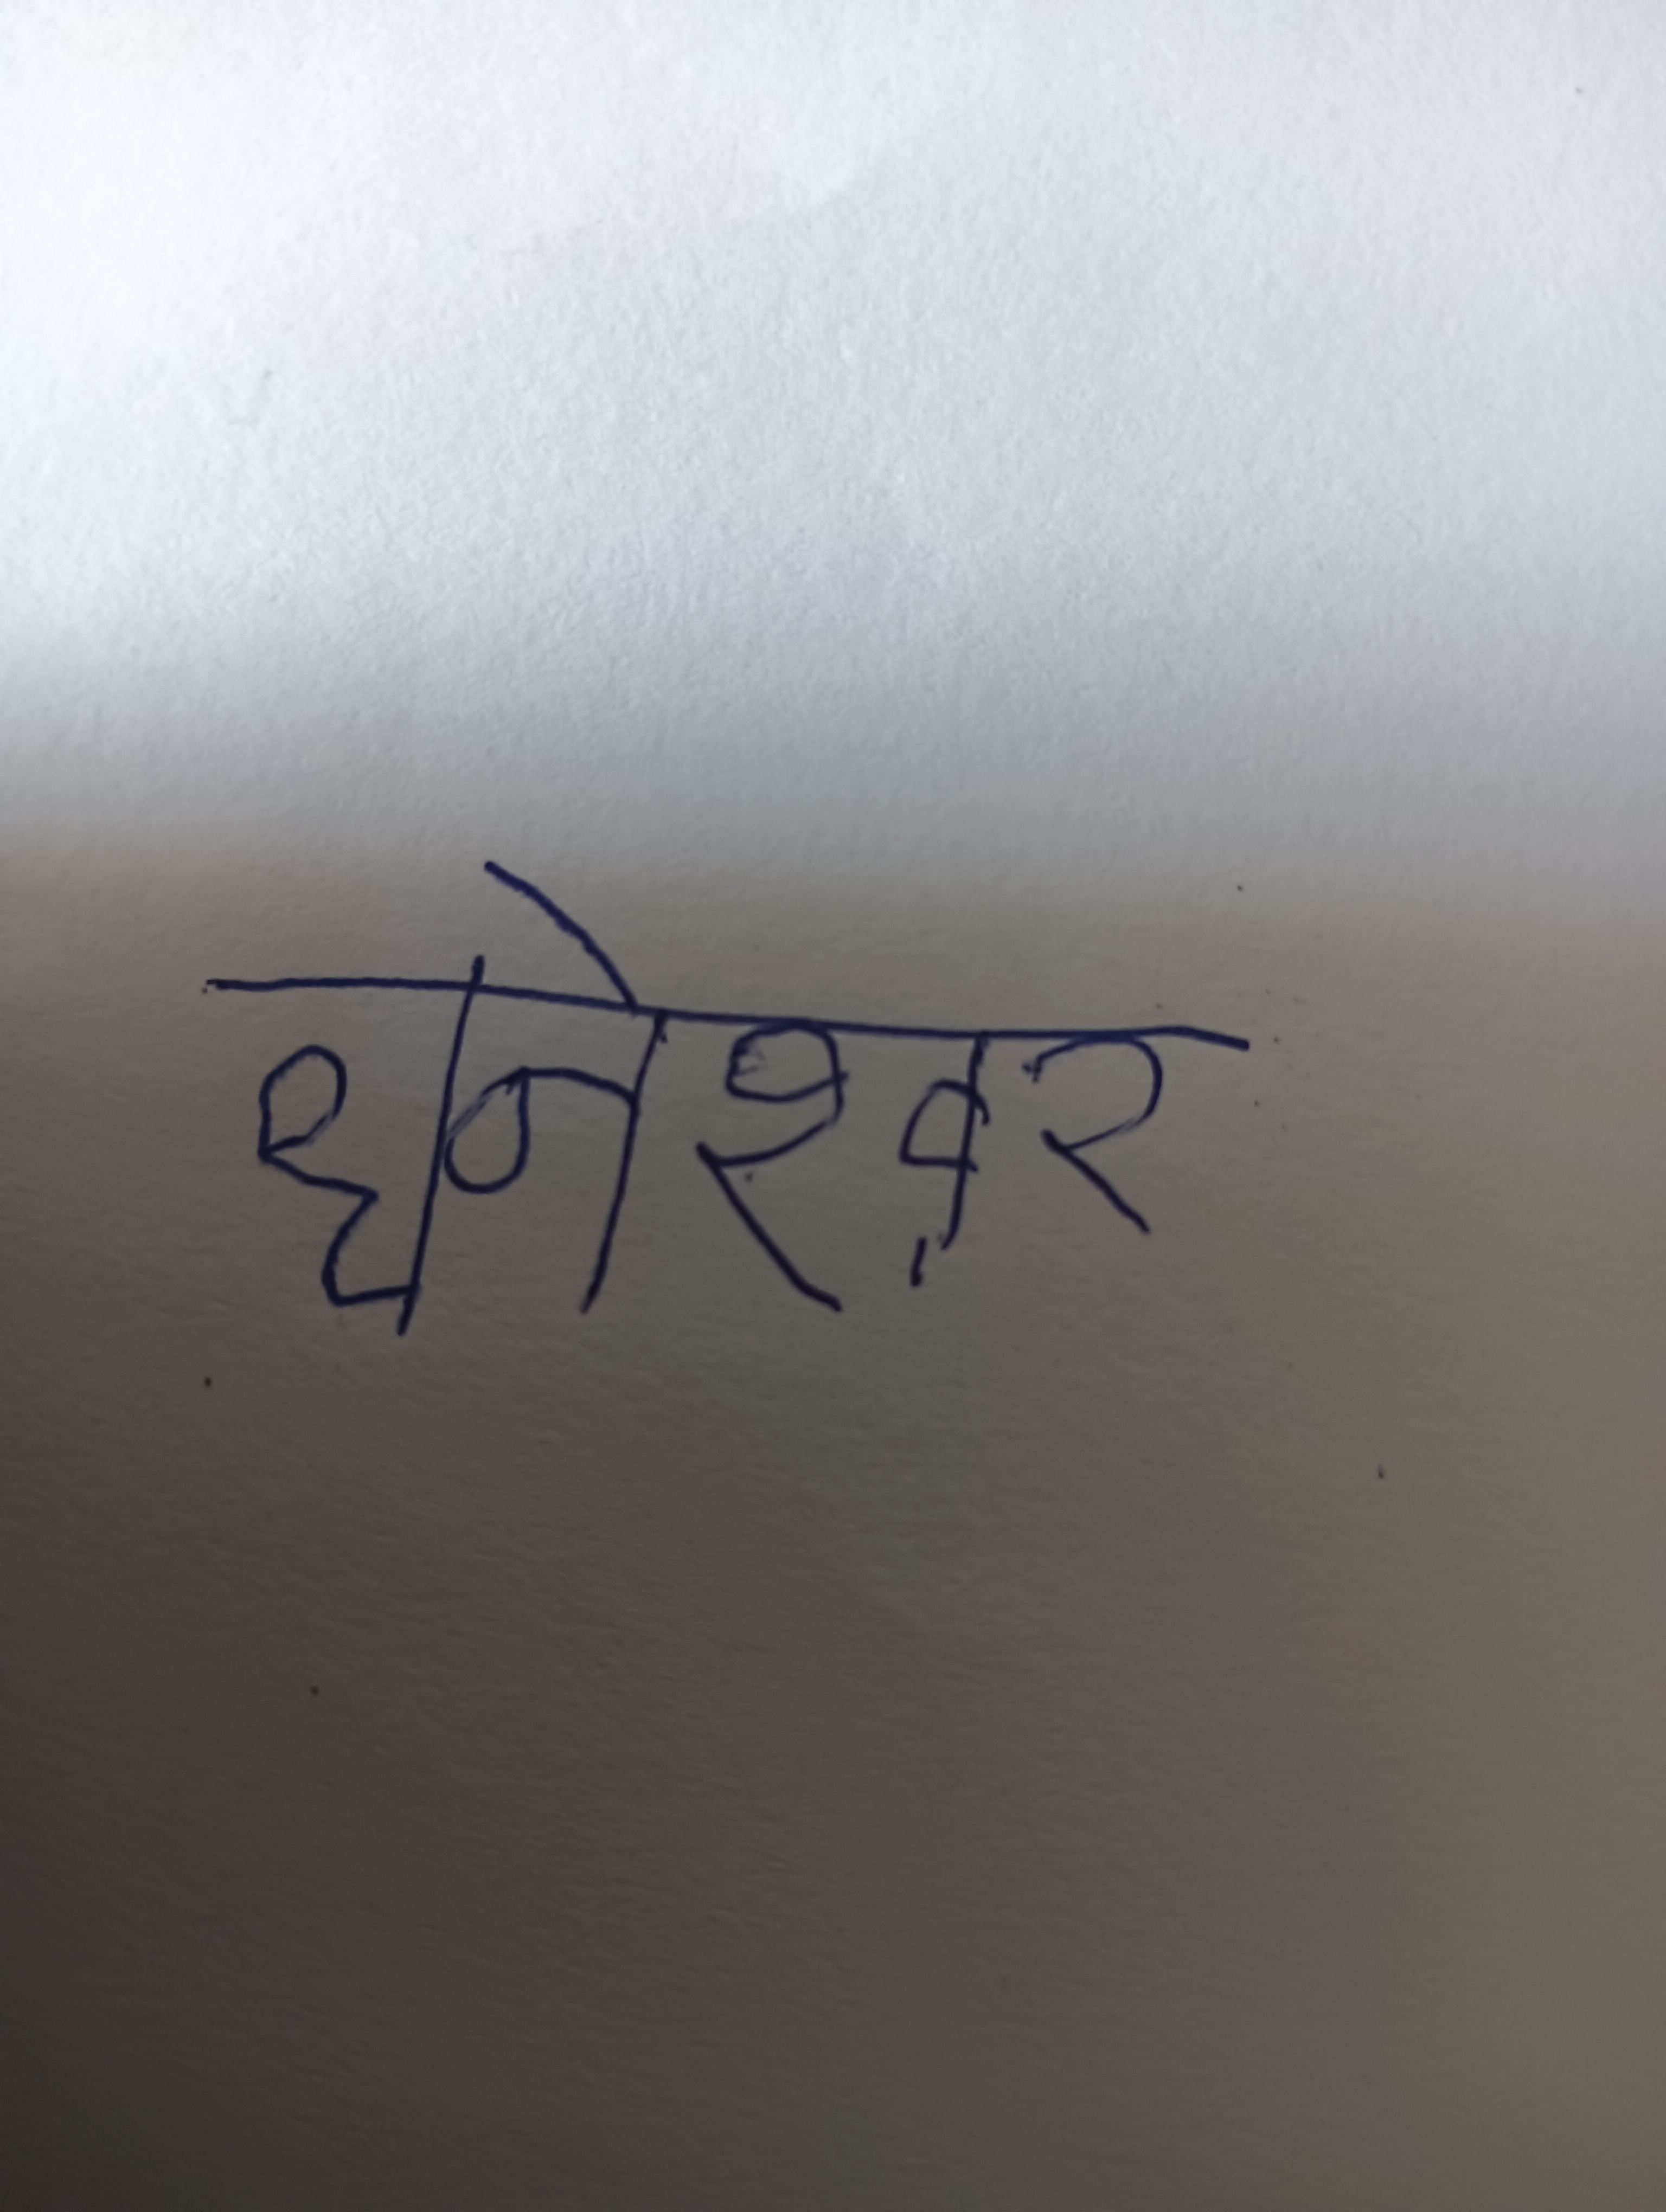 धनेश्वर